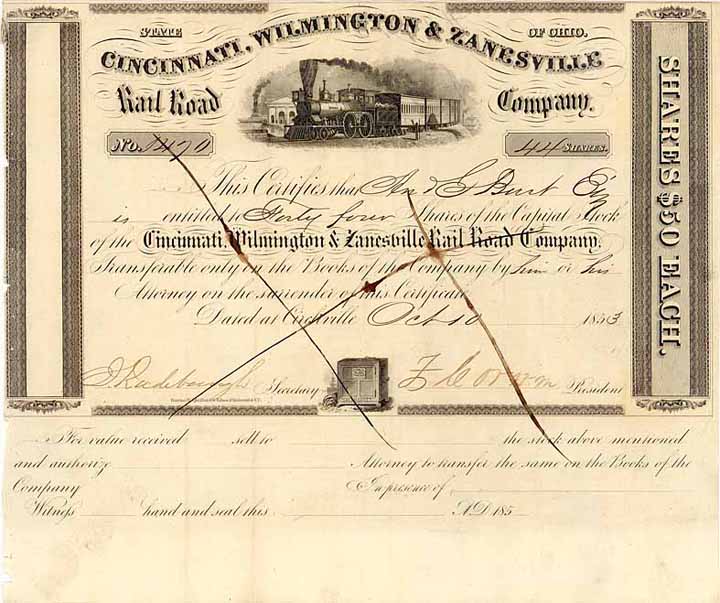 STATE OF OHIO.
CINCINNATI, WILMINGTON & ZANESVILLE
Rail Road Company.
No. 1470 44 SHARES.
This Certifies that And G Burt Esq
is entitled to Forty four Shares of the Capital Stock
of the Cincinnati, Wilmington & Zanesville Rail Road Company.
Transferable only on the Books of the Company by him or his
Attorney on the surrender of this Certificate
Dated at Circleville Oct 10 1853
Secretary F Corwin President
SHARES $50 EACH.
For value received sell to the stock above mentioned
and authorize Attorney to transfer the same on the Books of the
Company In presence of
Witness hand and seal this A.D. 185